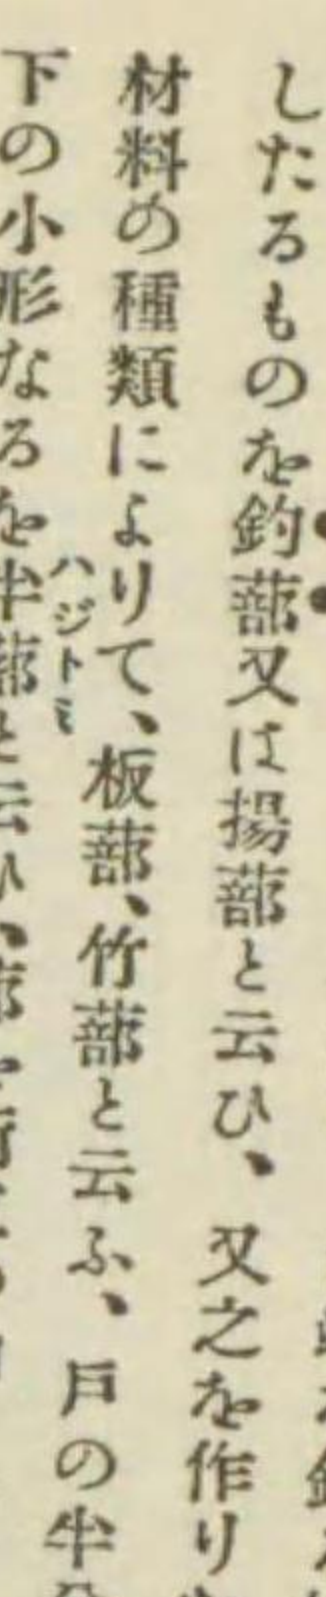 したるものを釣蔀又は揚蔀と云ひ、又之を作り
材料の種類によりて、板蔀、竹蔀と云ふ、戸の半
下の小形なるを半蔀と云ひ、
ハジトミ